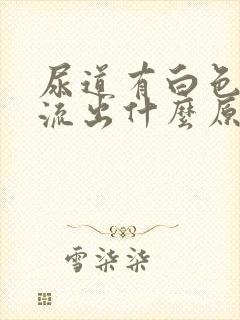 尿道有白色
流出什麼原
雪柒柒